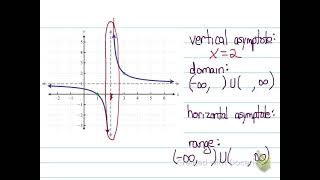 vertical asymptote:
x=2
domain:
(-∞, )∪( , ∞)
horizontal asymptote:
range:
(-∞, )∪( , ∞)